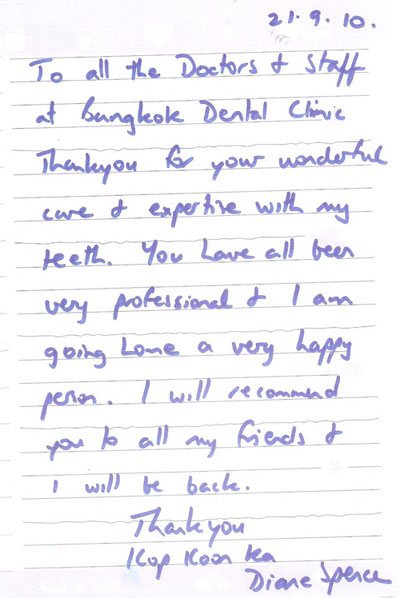 21.9.10.
To all the Doctors & Staff
at Bangkok Dental Clinic
Thankyou for your wonderful
care & expertise with my
teeth. You have all been
very professional & I am
going home a very happy
person. I will recommend
you to all my friends &
I will be back.
Thankyou
Kop Koon Ka
Diane Spence